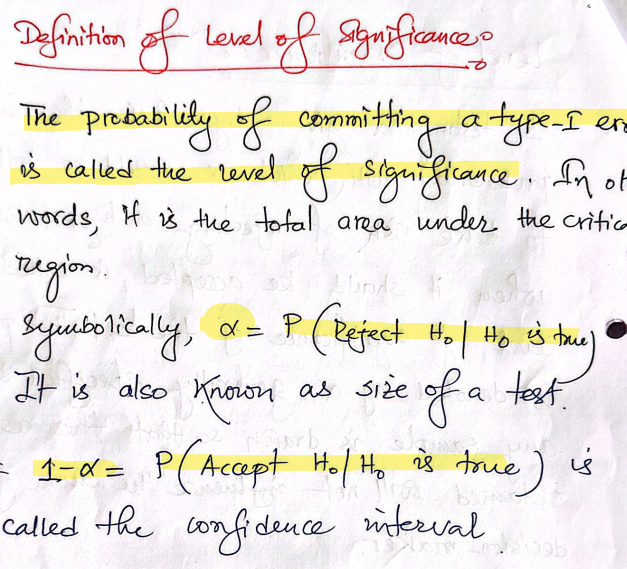 Definition of Level of Significance:
The probability of committing a type-I
is called the level of significance. In
words, it is the total area under the
region.
Symbolically, α = P (Reject H₀ / H₀ is true)
It is also known as size of a test.
1-α = P(Accept H₀/H₀ is true) is
called the confidence interval